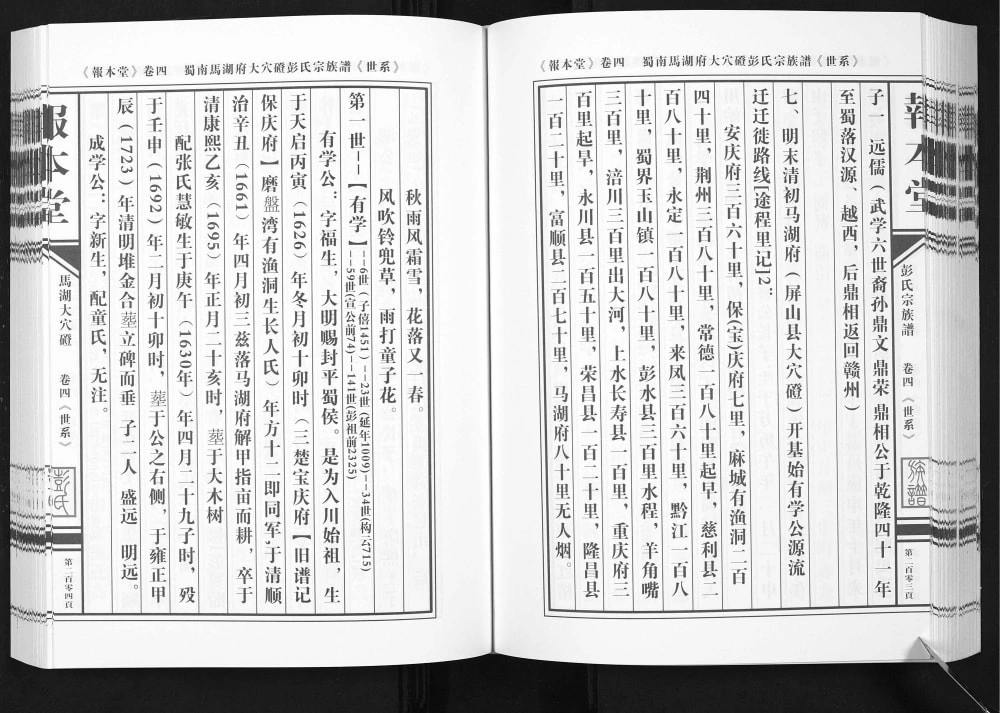 《報本堂》卷四 蜀南馬湖府大穴磴彭氏宗族譜《世系》
報本堂
彭氏宗族譜 卷四《世系》
族譜
第二百零三頁
子一 远儒（武学六世裔孙鼎文 鼎荣 鼎相公于乾隆四十一年
至蜀落汉源、越西，后鼎相返回赣州）
七、明末清初马湖府（屏山县大穴磴）开基始有学公源流
迁迁徙路线[途程里记]2：
安庆府三百六十里，保(宝)庆府七里，麻城有渔洞二百
四十里，荆州三百八十里，常德一百八十里起早，慈利县二
百八十里，永定一百八十里，来凤三百六十里，黔江一百八
十里，蜀界玉山镇一百八十里，彭水县三百里水程，羊角嘴
三百里，涪川三百里出大河，上水长寿县一百里，重庆府三
百里起旱，永川县一百五十里，荣昌县一百二十里，隆昌县
一百二十里，富顺县二百七十里，马湖府八十里无人烟。
《報本堂》卷四 蜀南馬湖府大穴磴彭氏宗族譜《世系》
秋雨风霜雪，花落又一春。
风吹铃兜草，雨打童子花。
第一世--【有学】--6世（子僖1451）--23世(延年1009)--34世(构云715)
--59世(宣公前74)--141世(彭祖前2325)
有学公：字福生，大明赐封平蜀侯。是为入川始祖，生
于天启丙寅（1626）年冬月初十卯时（三楚宝庆府【旧谱记
保庆府】磨盤湾有渔洞生长人氏）年方十二即同军,于清顺
治辛丑（1661）年四月初三兹落马湖府解甲指亩而耕，卒于
清康熙乙亥（1695）年正月二十亥时，葬于大木树
配张氏慧敏生于庚午（1630年）年四月二十九子时，殁
于壬申（1692）年二月初十卯时，葬于公之右侧，于雍正甲
辰（1723）年清明堆金合葬立碑而垂 子二人 盛远 明远。
成学公：字新生，配童氏，无注。
報本堂
馬湖大穴磴 卷四《世系》
彭氏
第二百零四頁